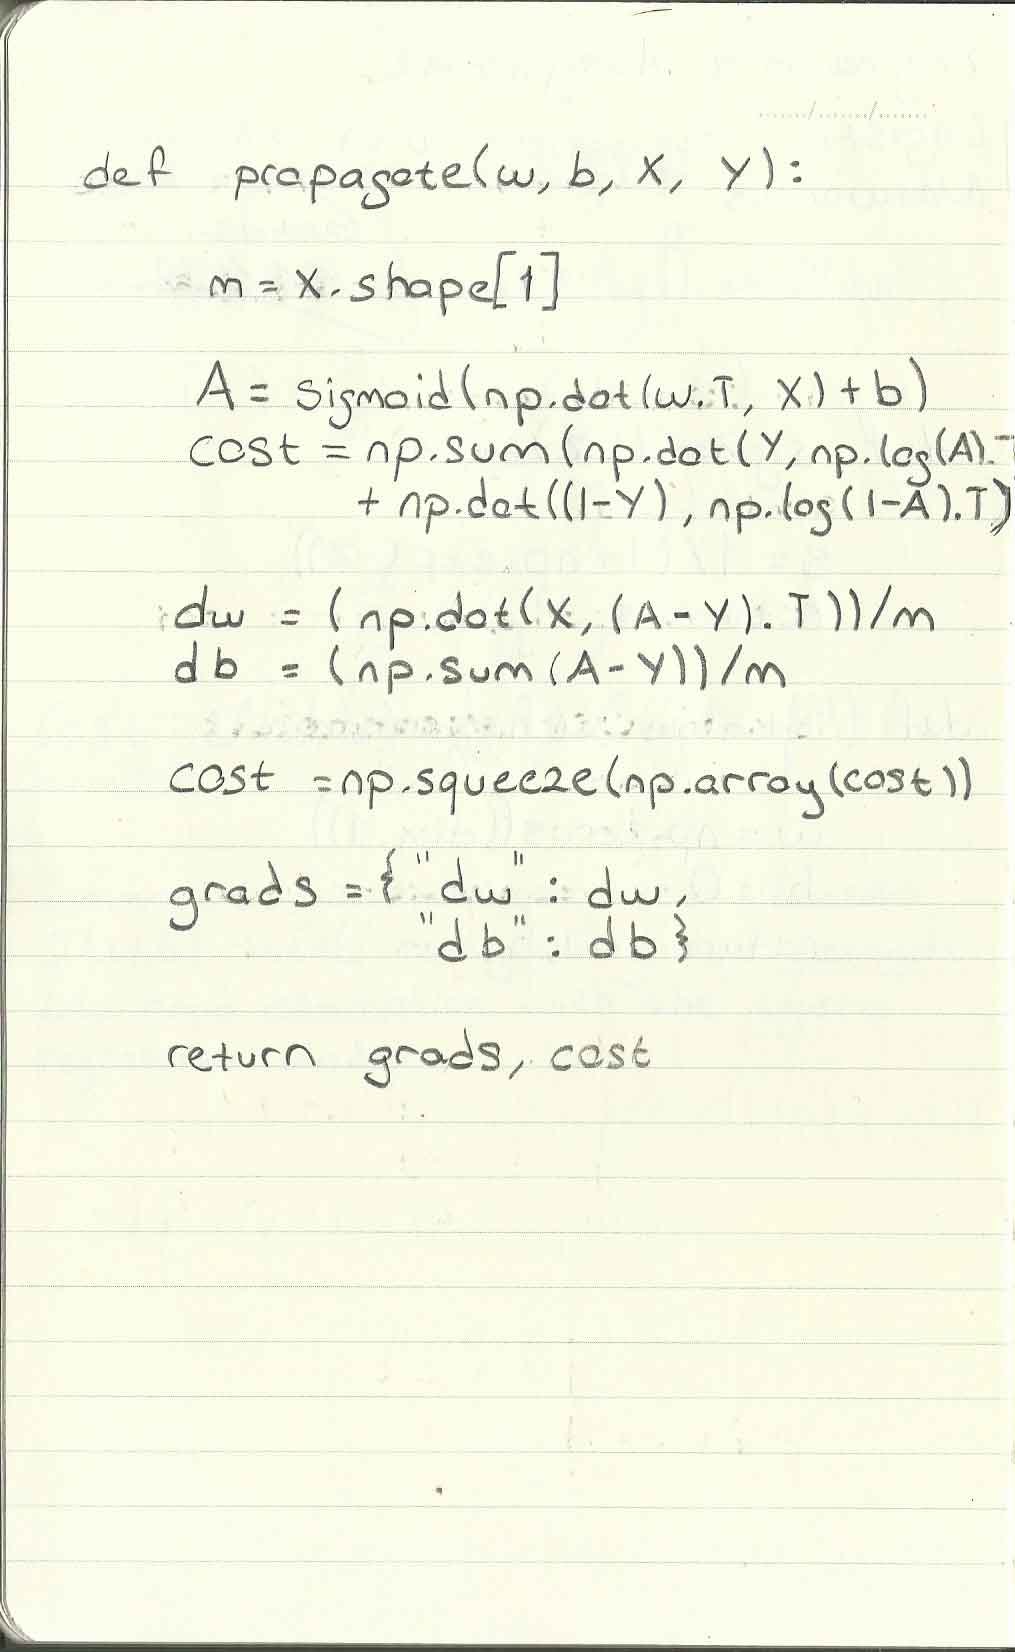 def propagate(w, b, X, Y):
m = X.shape[1]
A = sigmoid(np.dot(w.T, X) + b)
cost = np.sum(np.dot(Y, np.log(A).T
+ np.dot((1-Y), np.log(1-A).T)
dw = (np.dot(X, (A-Y).T))/m
db = (np.sum(A-Y))/m
cost = np.squeeze(np.array(cost))
grads = {"dw" : dw,
"db" : db}
return grads, cost